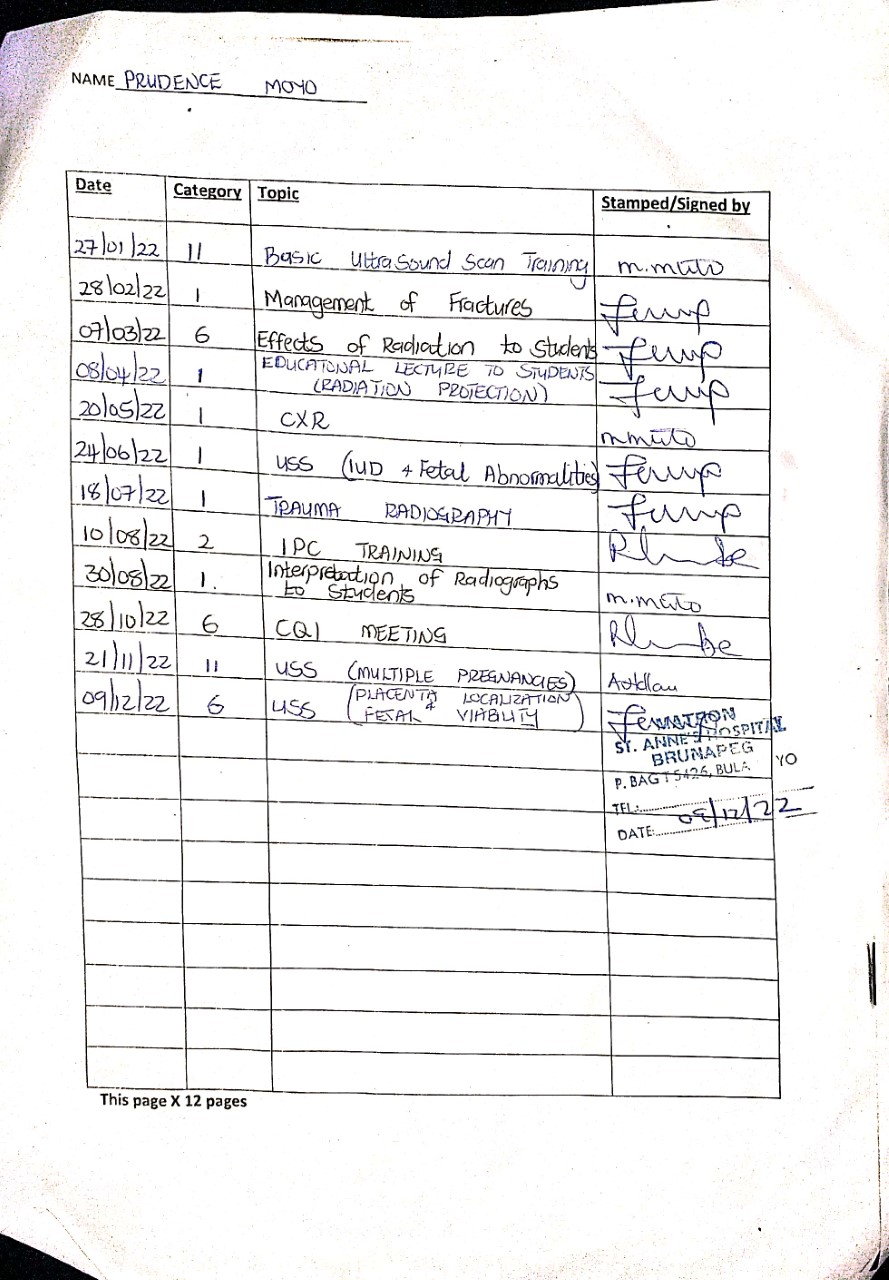 NAME PRUDENCE MOYO
Date Category Topic Stamped/Signed by
27/01/22 11 Basic Ultrasound Scan Training m.muto
28/02/22 1 Management of Fractures
07/03/22 6 Effects of Radiation to Students
08/04/22 1 EDUCATIONAL LECTURE TO STUDENTS
(RADIATION PROTECTION)
20/05/22 1 CXR
24/06/22 1 USS (IUD + Fetal Abnormalities)
18/07/22 1 TRAUMA RADIOGRAPHY
10/08/22 2 IPC TRAINING
30/08/22 1. Interpretation of Radiographs
to Students
28/10/22 6 CQI MEETING
21/11/22 11 USS (MULTIPLE PREGNANCIES)
09/12/22 6 USS (PLACENTA LOCALIZATION
& FETAL VIABILITY)
ST. ANNE'S HOSPITAL
BRUNAPEG
P. BAG T5426, BULA YO
TEL:
DATE: 09/12/22
This page X 12 pages